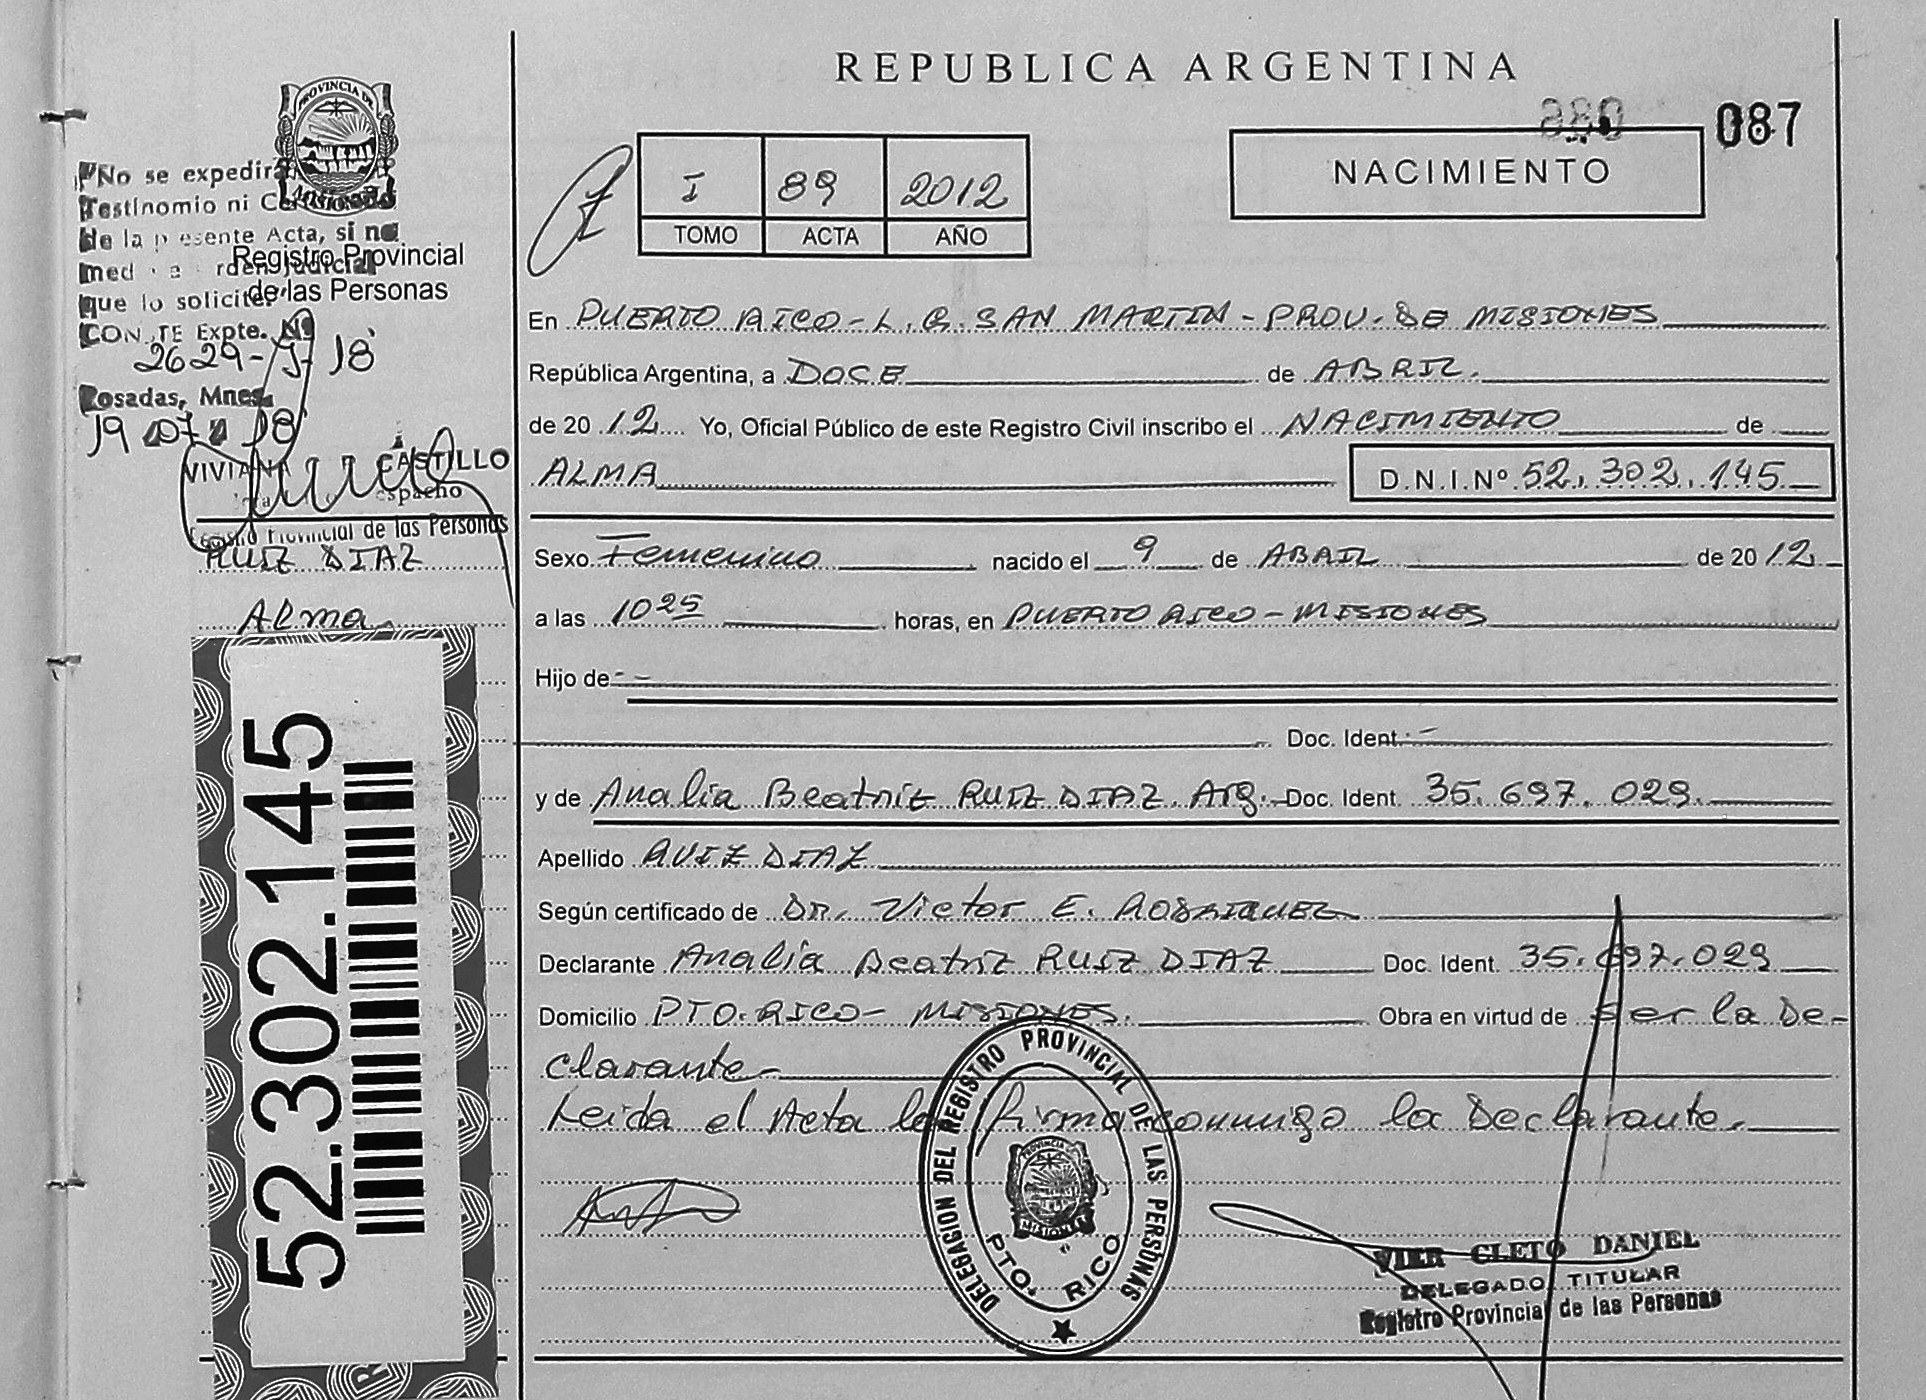 REPUBLICA ARGENTINA
087
NACIMIENTO
I 89 2012
TOMO ACTA AÑO
PROVINCIA DE
MISIONES
Registro Provincial
de las Personas
"No se expedirá
Testinomio ni Certificado
de la presente Acta, si no
med a orden judicial
que lo solicite."
CON TE Expte. Nº
2629-J-18
Posadas, Mnes.
19 07 18
VIVIANA CASTILLO
espacho
Provincial de las Personas
RUIZ DIAZ
Alma
52.302.145
En PUERTO RICO - L.G. SAN MARTIN - PROV. DE MISIONES
República Argentina, a DOCE de ABRIL.
de 2012 Yo, Oficial Público de este Registro Civil inscribo el NACIMIENTO de
ALMA D.N.I.Nº 52.302.145
Sexo Femenino nacido el 9 de ABRIL de 2012
a las 10 25 horas, en PUERTO RICO - MISIONES
Hijo de - -
Doc. Ident. -
y de Analia Beatriz RUIZ DIAZ. Arg. Doc. Ident. 35.697.029.
Apellido RUIZ DIAZ
Según certificado de DR. Victor E. RODRIGUEZ
Declarante Analia Beatriz RUIZ DIAZ Doc. Ident. 35.697.029
Domicilio PTO. RICO - MISIONES. Obra en virtud de Ser la De-
clarante.
Leida el Acta la firma conmigo la Declarante.
DELEGACION DEL REGISTRO PROVINCIAL DE LAS PERSONAS
PROVINCIA DE
MISIONES
PTO. RICO
VIER CLETO DANIEL
DELEGADO TITULAR
Registro Provincial de las Personas